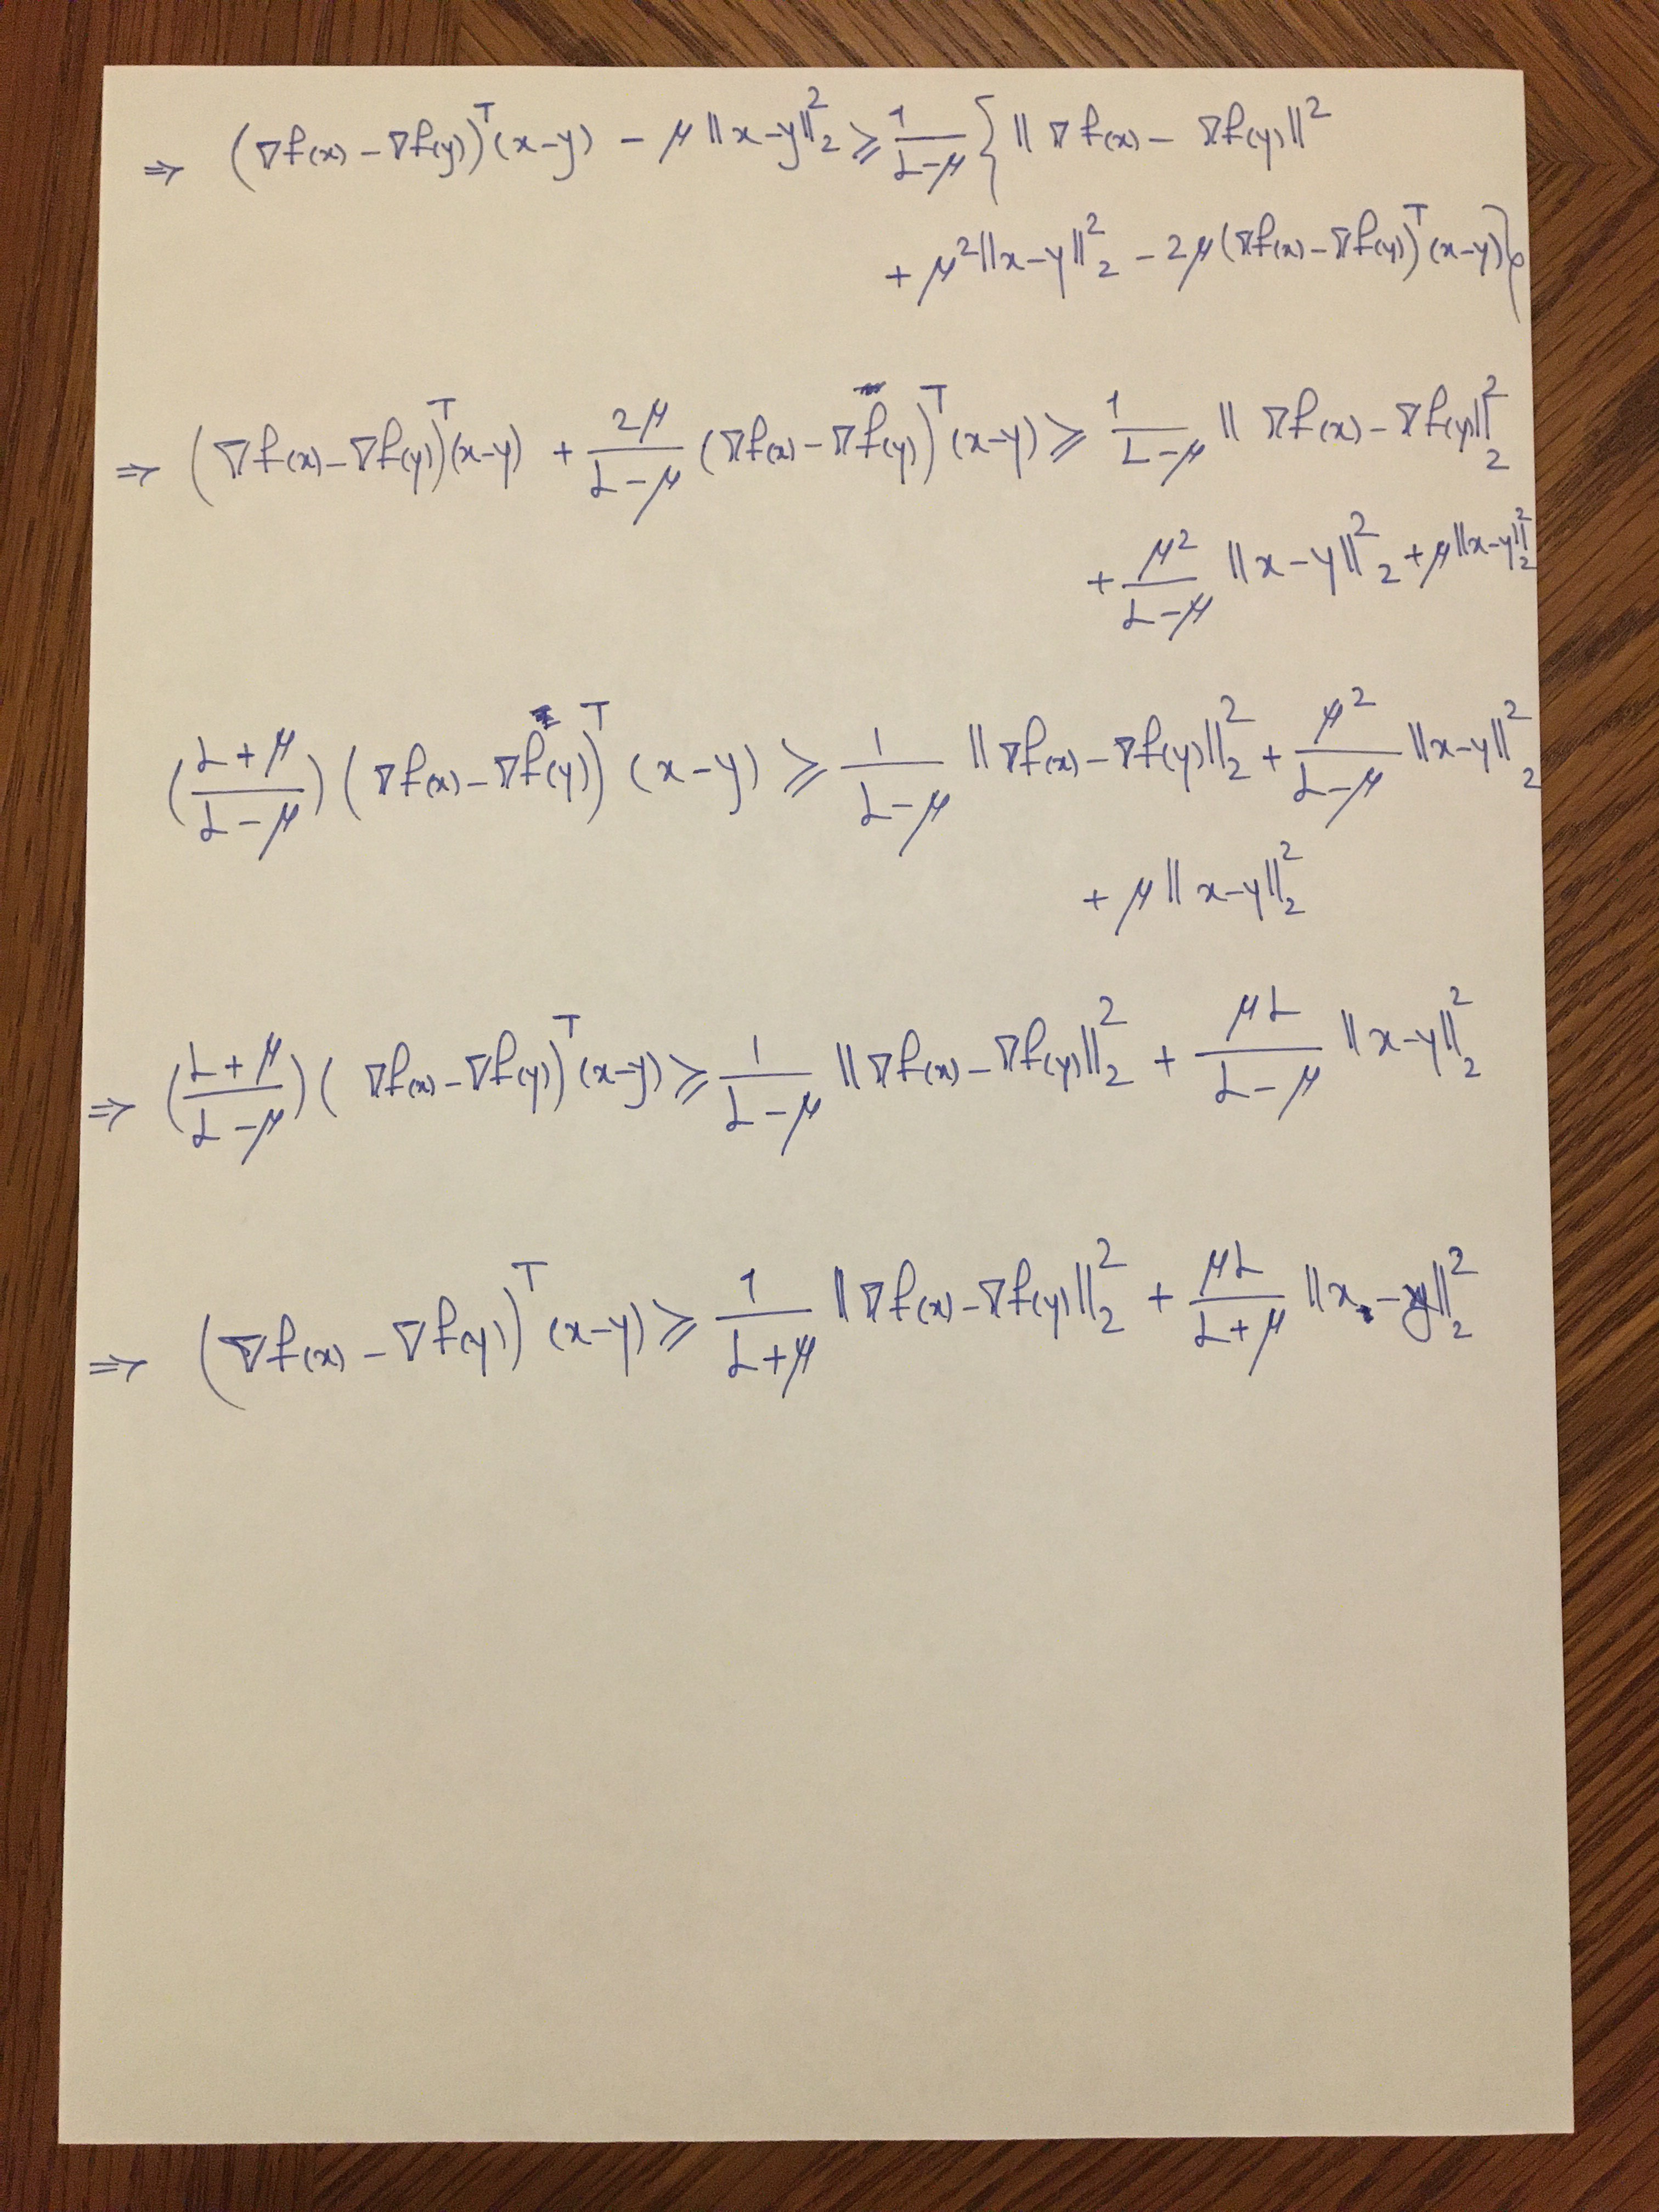 ⇒ (∇f(x) − ∇f(y))ᵀ(x−y) − μ‖x−y‖₂² ≥ 1/(L−μ) {‖∇f(x) − ∇f(y)‖²
+ μ²‖x−y‖₂² − 2μ(∇f(x) − ∇f(y))ᵀ(x−y)}
⇒ (∇f(x) − ∇f(y))ᵀ(x−y) + 2μ/(L−μ) (∇f(x) − ∇f(y))ᵀ(x−y) ≥ 1/(L−μ) ‖∇f(x) − ∇f(y)‖₂²
+ μ²/(L−μ) ‖x−y‖₂² + μ‖x−y‖₂²
((L+μ)/(L−μ)) (∇f(x) − ∇f(y))ᵀ(x−y) ≥ 1/(L−μ) ‖∇f(x) − ∇f(y)‖₂² + μ²/(L−μ) ‖x−y‖₂²
+ μ‖x−y‖₂²
⇒ ((L+μ)/(L−μ)) (∇f(x) − ∇f(y))ᵀ(x−y) ≥ 1/(L−μ) ‖∇f(x) − ∇f(y)‖₂² + μL/(L−μ) ‖x−y‖₂²
⇒ (∇f(x) − ∇f(y))ᵀ(x−y) ≥ 1/(L+μ) ‖∇f(x) − ∇f(y)‖₂² + μL/(L+μ) ‖x−y‖₂²